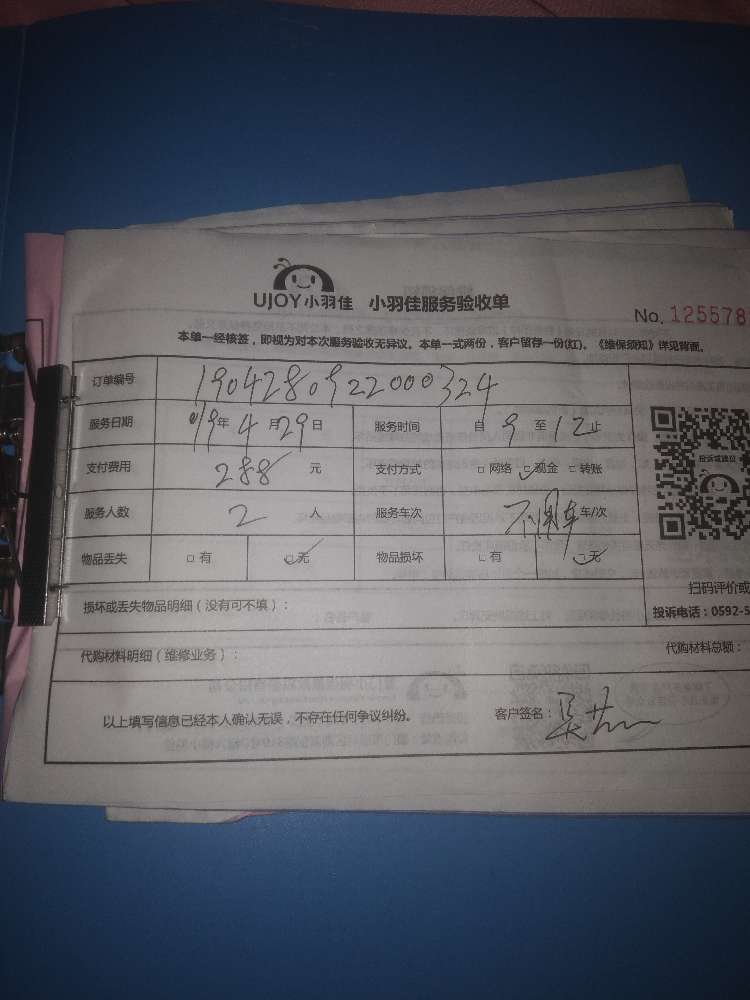 UJOY小羽佳 小羽佳服务验收单
No. 1255578
本单一经核签，即视为对本次服务验收无异议。本单一式两份，客户留存一份(红)。《维保须知》详见背面。
订单编号 1904280922000324
服务日期 019年4月29日 服务时间 自9至12止
支付费用 288元 支付方式 □网络 ☑现金 □转账
服务人数 2人 服务车次 不用车 车/次
物品丢失 □有 ☑无 物品损坏 □有 ☑无
投诉或建议
扫码评价或
损坏或丢失物品明细（没有可不填）：
投诉电话：0592-5
代购材料明细（维修业务）：
代购材料总额：
以上填写信息已经本人确认无误，不存在任何争议纠纷。 客户签名：